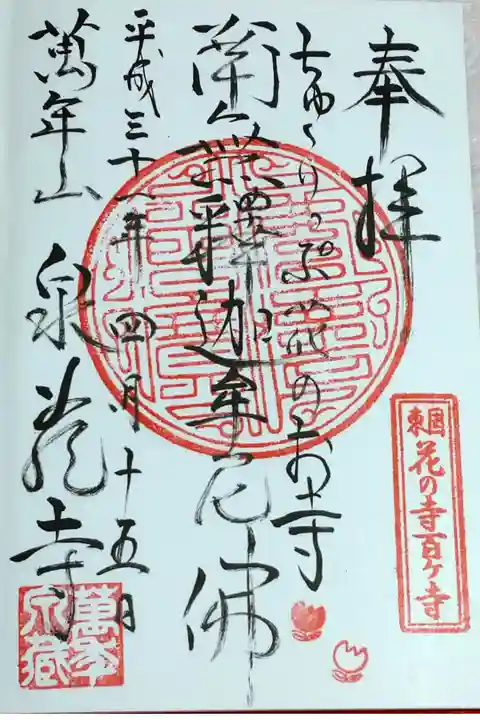 奉拝
ちゆうりっぷ花のお寺
南無釋迦牟尼佛
平成三十一年四月十五日
萬年山 泉蔵寺
東国
花の寺百ヶ寺
萬年
泉蔵